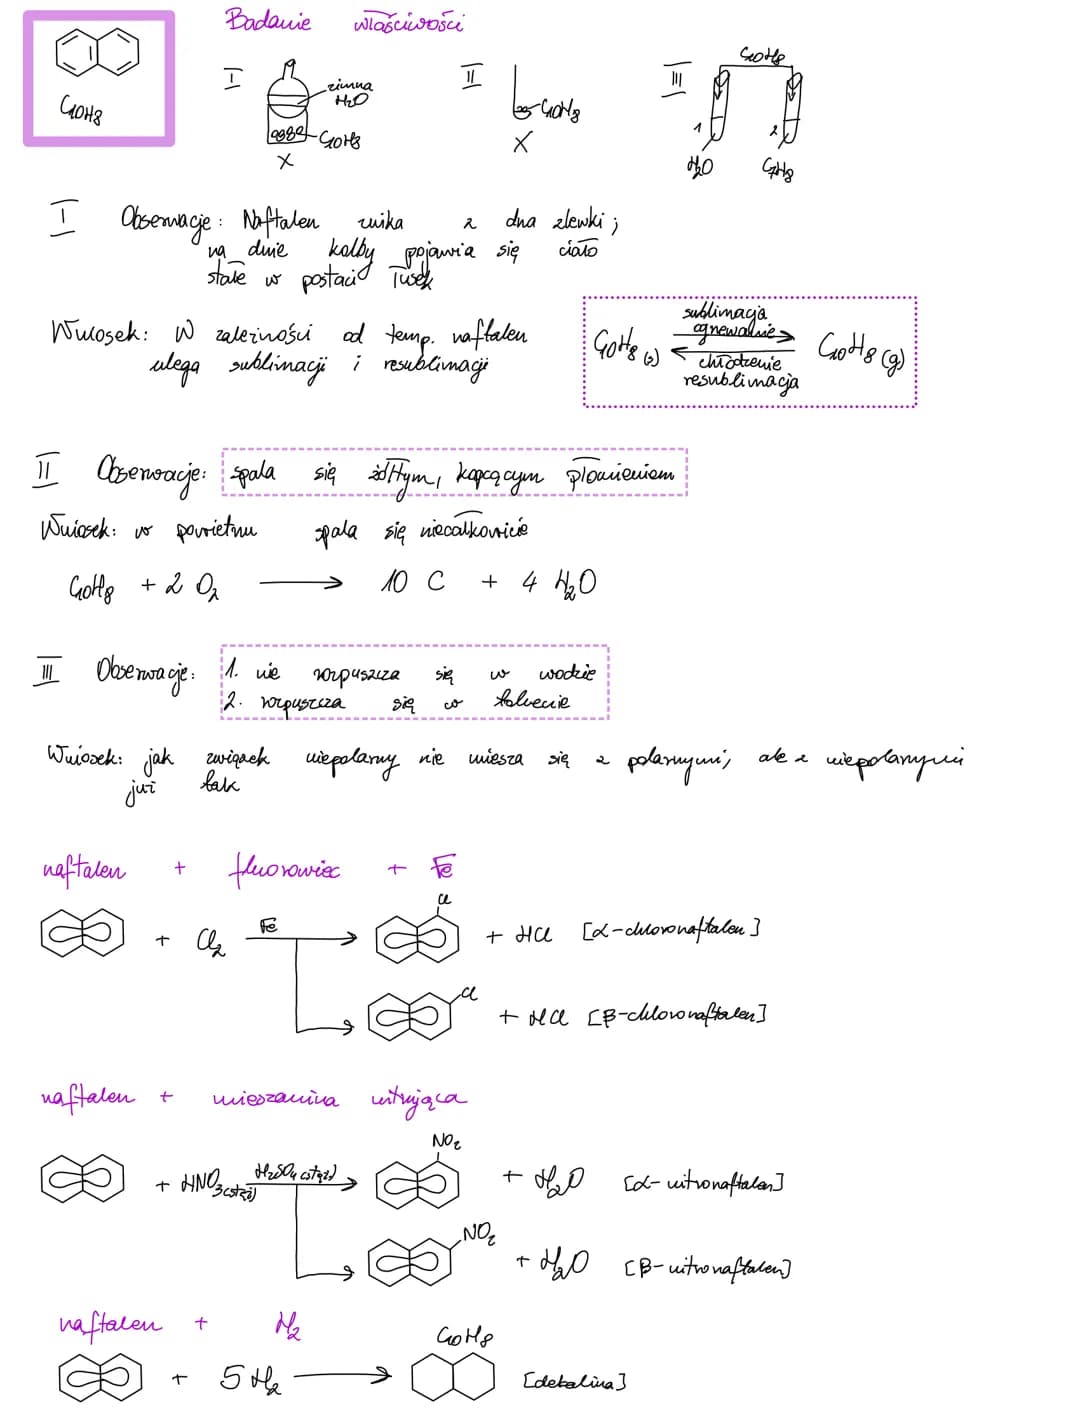 Badanie właściwości
C10H8
I
zimna
H2O
C10H8
X
II
C10H8
X
III
C10H8
1
2
H2O
C7H8
I Obserwacje: Naftalen znika z dna zlewki;
na dnie kolby pojawia się ciało
stałe w postaci łusek
Wniosek: W zależności od temp. naftalen
ulega sublimacji i resublimacji
sublimacja
ogrzewanie
C10H8 (s) ⇄ C10H8 (g)
chłodzenie
resublimacja
II Obserwacje: spala się żółtym, kopcącym płomieniem
Wniosek: w powietrzu spala się niecałkowicie
C10H8 + 2 O2 → 10 C + 4 H2O
III Obserwacje: 1. nie rozpuszcza się w wodzie
2. rozpuszcza się w toluenie
Wniosek: jak związek niepolarny nie miesza się z polarnymi, ale z niepolarnymi
już tak
naftalen + fluorowiec + Fe
+ Cl2 Fe → Cl + HCl [α-chloronaftalen]
Cl + HCl [β-chloronaftalen]
naftalen + mieszanina nitrująca
+ HNO3(stęż) H2SO4(stęż) → NO2 + H2O [α-nitronaftalen]
NO2 + H2O [β-nitronaftalen]
naftalen + H2
C10H8
+ 5 H2 → [dekalina]